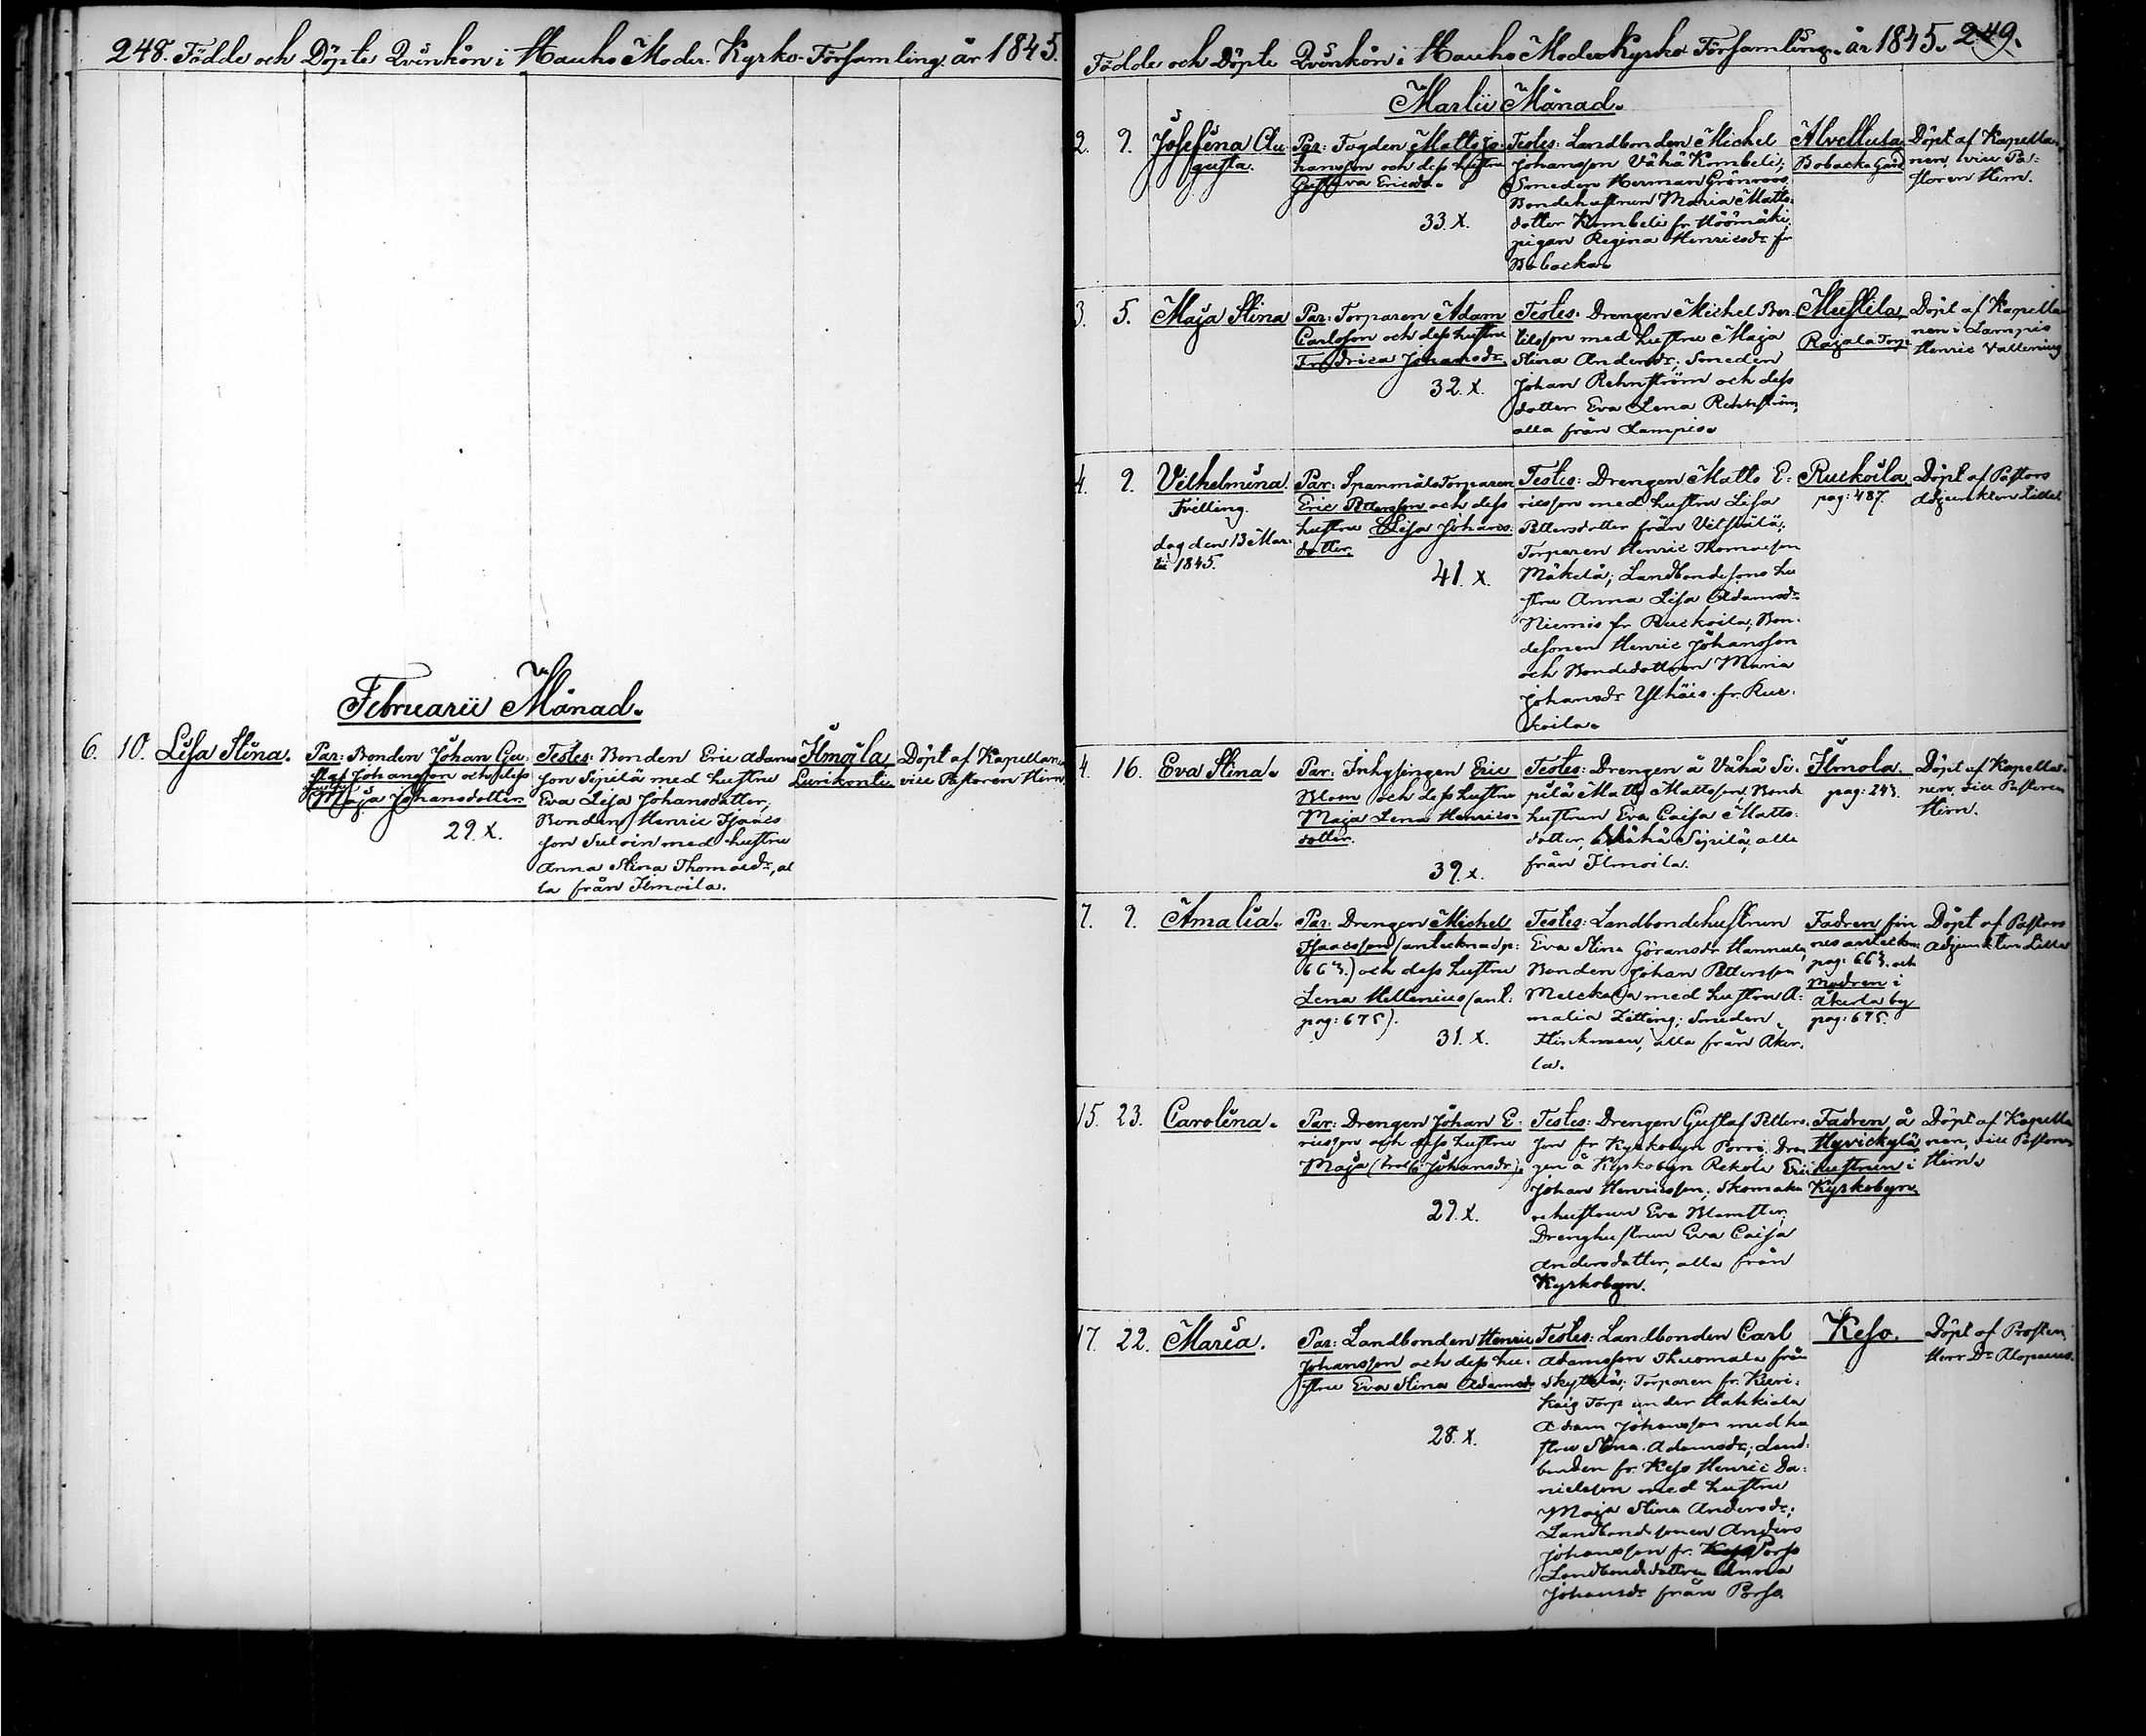 248. Födde och Döpte Qvinkön i Hauho Moder-Kyrko-Församling år 1845.
Februarii Månad.
6. 10. Lisa Stina.
Par: Bonden Johan Gu-
staf Johansson och dess
hustru
Maja Johansdotter.
29. X.
Testes: Bonden Eric Adams
son Sipilä med hustru
Eva Lisa Johansdotter,
Bonden Henric Isaacs
son Suloin med hustru
Anna Stina Thomasdr, al
la från Ilmoila.
Ilmoila
Döpt af Kapellan
vice Pastoren Hirn.
Födde och Döpte Qvinkön i Hauho Moder Kyrko Församling år 1845. 249.
Martii Månad.
2. 9. Josefina Au
gusta.
Par: Fogden Matts Jo-
hansson och dess hustru
Gustava Ericsdr.
33. X.
Testes: Landbonden Michel
Johansson Vähä Kombeli;
Smeden Herman Grönroos,
Bondehustrun Maria Matts-
dotter Kombeli fr.
pigan Regina Henricsdr fr
Bobacka.
Alvettula
Bobacka Gård
Döpt af Kapella-
nen, vice Pa-
storen Hirn.
3. 5. Maja Stina
Par: Torparen Adam
Carlsson och dess hustru
Fredrica Johansdr.
32. X.
Testes: Drengen Michel Ber-
tilsson med hustru Maja
Stina Andersdr; Smeden
Johan Rehnström och dess
dotter Eva Lena Rehnström,
alla från Lampis.
Mustila,
Rajala Torp.
Döpt af Kapella-
nen i Lampis
Henric
4. 9. Vilhelmina.
Tvilling.
dog den 13 Mar-
tii 1845.
Par: Spanmåls Torparen
Eric Pettersson och dess
hustru Lisa Johans-
dotter.
41. X.
Testes: Drengen Matts E-
ricsson med hustru Lisa
Pettersdotter från
Torparen Henric Thomasson
Mäkelä; Landbondesons hu
stru Anna Lisa Adamsdr
Niemis fr. Ruckoila; Bon-
desonen Henric Johansson
och Bondedottren Maria
Johansdr fr. Ruc-
koila.
Ruckoila
pag: 487.
Döpt af Pastors
Adjunkten
4. 16. Eva Stina.
Par: Inhysingen Eric
Blom och dess hustru
Maja Lena Henrics-
dotter.
39. X.
Testes: Drengen å Vähä Si-
pilä Matts Mattsson, Bond
hustrun Eva Caisa Matts-
dotter, Vähä Sipilä, alla
från Ilmoila.
Ilmola.
pag: 243.
Döpt af Kapella-
nen, vice Pastoren
Hirn.
7. 9. Amalia.
Par: Drengen Michel
Isaacsson (antecknad p:
663.) och dess hustru
Lena Hellenius (ant:
pag: 675).
31. X.
Testes: Landbondehustrun
Eva Stina Göransdr Hannula,
Bonden Johan Pettersson
med hustru A-
malia Zitting; Smeden
Flinkman, alla från Åker-
la.
Fadren fin
nes anteckn:
pag: 663. och
Modren i
Åkerla by
pag: 675.
Döpt af Pastors
Adjunkten
15. 23. Carolina.
Par: Drengen Johan E-
ricsson och dess hustru
Maja Johansdr).
29. X.
Testes: Drengen Gustaf Petters-
son fr Kyrkobyn Porri; Dren
gen å Kyrkobyn Rekola Eric
Johan Henricsson; Skomaka
rehustrun Eva Blomster;
Drenghustrun Eva Caisa
Andersdotter, alla från
Kyrkobyn.
Fadren å
Hyvickylä
hustrun i
Kyrkobyn.
Döpt af Kapella
nen, vice Pastoren
Hirn.
17. 22. Maria.
Par: Landbonden Henric
Johansson och dess hu-
stru Eva Stina Adamsdr
28. X.
Testes: Landbonden Carl
Adamsson Thuomala från
Skyttälä; Torparen fr.
Torp under Hahkiala
Adam Johansson med hu
stru Stina Adamsdr; Land-
bonden fr. Keso Henric Da-
nielsson med hustru
Maja Stina Andersdr;
Landbondsonen Anders
Johansson fr. Porso
Landbondedottren Anna
Johansdr från Porso.
Keso.
Döpt af Prosten,
Herr Dr Alopæus.